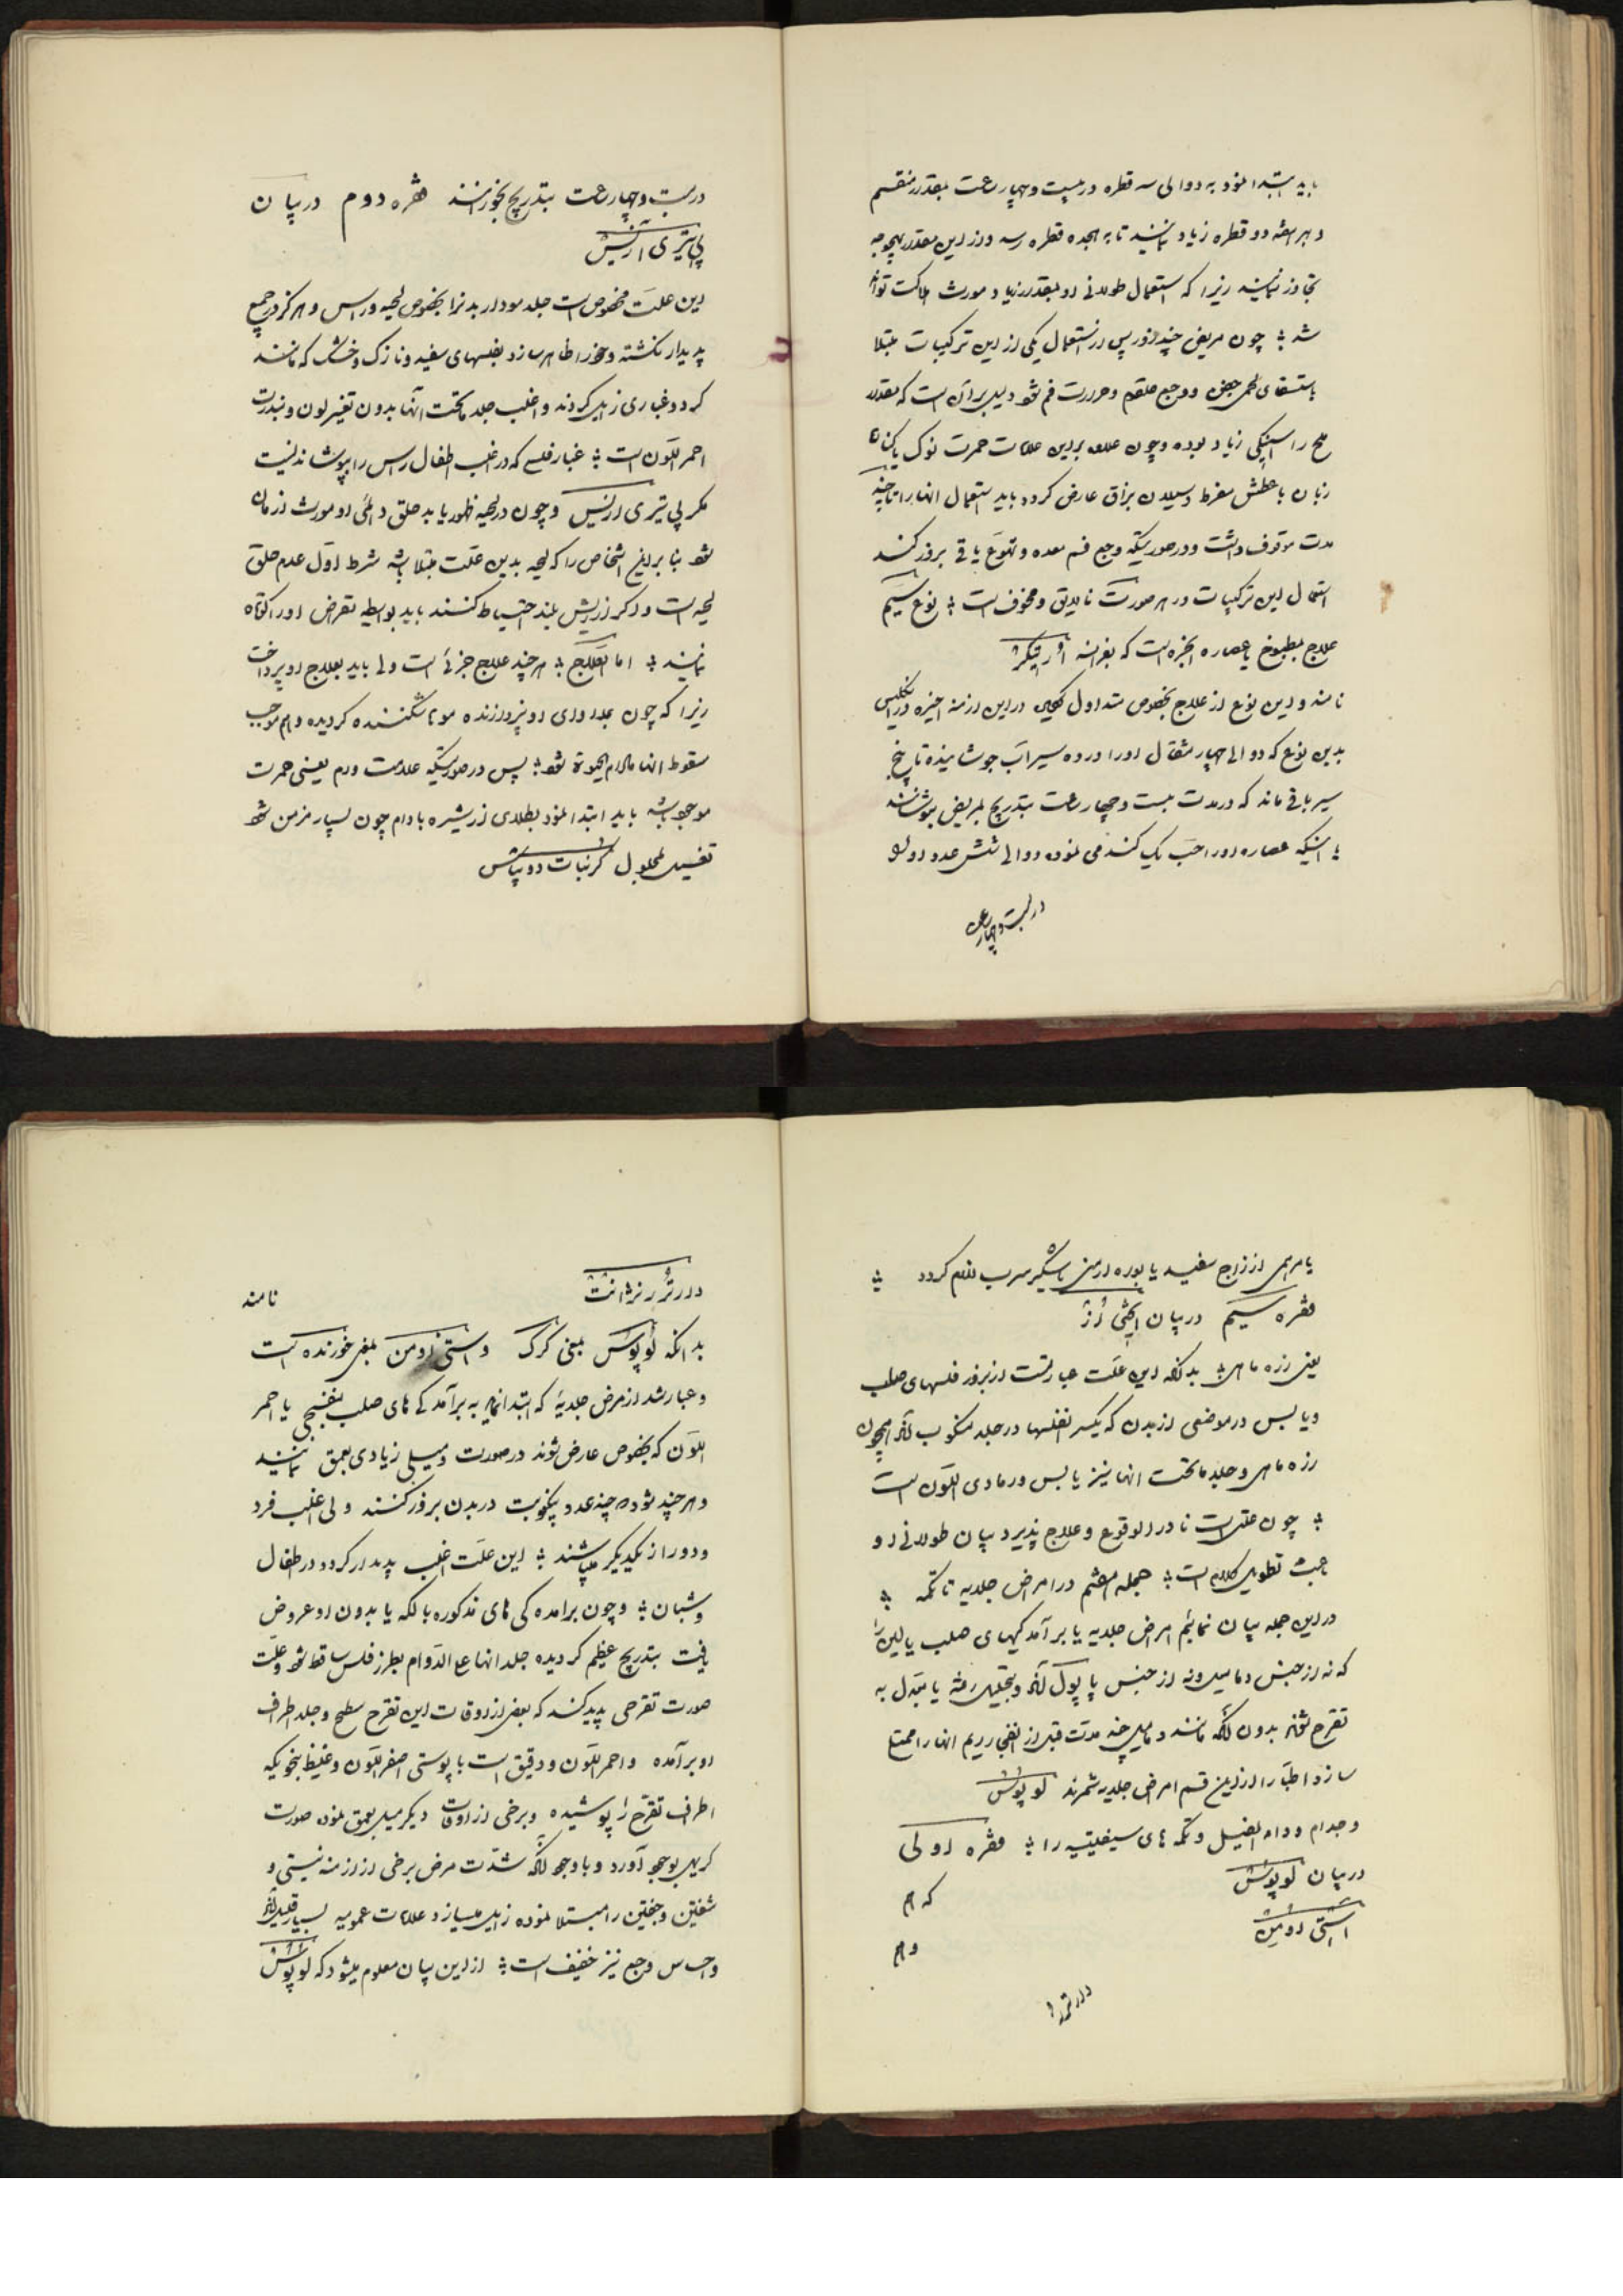 باید ابتدا نمود به دو الی سه قطره در بیست و چهار ساعت بقدر منقسم
و هر هفته دو قطره زیاد نمایند تا به هجده قطره رسد و از این مقدار بهیچوجه
تجاوز ننمایند زیرا که استعمال طولانی او بمقدار زیاد مورث هلاکت تواند
شد ؛ چون مریض چند روز پس از استعمال یکی از این ترکیبات مبتلا
باستسقای لحمی جفن و وجع حلقوم و حرارت فم شود دلیل بر آن است که مقدار
ملح ارسنیکی زیاد بوده و چون علاوه بر این علامات حمرت نوک یا کنار
زبان با عطش مفرط و سیلان بزاق عارض گردد باید استعمال آنها را تا چند
مدت موقوف داشت و در صورتیکه وجع فم معده و تهوع یا قی بروز کند
استعمال این ترکیبات در هر صورت نالایق و مخوف است ؛ نوع سیم
علاج بمطبوخ یا عصاره انجره است که بفرانسه اورتیکر
نامند و این نوع از علاج بخصوص متداول در این ازمنه اخیره در انگلیس
بدین نوع که دو الی چهار مثقال او را در ده سیر آب جوشانیده تا پنج
سیر باقی ماند که در مدت بیست و چهار ساعت بتدریج بمریض بنوشانند
یا اینکه عصاره او را حب یک گندمی نموده دو الی شش عدد او را
در بیست و چهار ساعت
در بیست و چهار ساعت بتدریج بخورانند فقره دوم در بیان
پی تیری آزیس
این علت مخصوص است جلد مودار بدن را بخصوص لحیه و راس و هرگز در جمیع
پدیدار نگشته و خود را ظاهر سازد بفلسهای سفید و نازک و خشک که مانند
گرد و غباری زایل گردند و اغلب جلد ماتحت آنها بدون تغییر لون و بندرت
احمر اللون است ؛ غبار فلسی که در اغلب اطفال راس را بپوشاند نیست
مگر پی تیری ازیس و چون در لحیه ظهور یابد حلق دائمی او مورث ازمان
شود بنابراین اشخاص را که لحیه بدین علت مبتلا باشد شرط اول عدم حلق
لحیه است و اگر از ریش بلند احتیاط کنند باید بواسطه مقراض او را کوتاه
نمایند ؛ اما العلاج ؛ هر چند علاج جزئی است ولی باید بعلاج او پرداخت
زیرا که چون بمداوای او نپردازند موها شکننده گردیده و هم موجب
سقوط آنها مادام الحیوة شود ؛ پس در صورتیکه علامت ورم یعنی حمرت
موجود باشد باید ابتدا نمود بطلای از شیره بادام چون بسیار مزمن شود
تغسیل بمحلول کربنات دو پتاس
یا مرهمی از زاج سفید یا بوره ارمنی یا شکر سرب لازم گردد ؛
فقره سیم در بیان ایختی اُز
یعنی زره ماهی ؛ بدانکه این علت عبارتست از بروز فلسهای صلب
و یابس در موضعی از بدن که یکسر فلسها در جلد منکوب بوده همچون
زره ماهی و جلد ماتحت آنها نیز یابس و رمادی اللون است
؛ چون علتی است نادر الوقوع و علاج پذیرد بیان طولانی او
باعث تطویل کلام است ؛ جمله هشتم در امراض جلدیه با تکمه ؛
در این جمله بیان نمائیم امراض جلدیه با برآمدگیهای صلب یا لین را
که نه از جنس دمامیل و نه از جنس پاپول بوده و بتحلیل رفته یا مبدل به
تقرح شوند بدون آنکه مانند دمامیل چند مدت قبل از انفجار ریم آنها را ممتلی
سازد اطباء از این قسم امراض جلدیه شمرند لوپوس
و جذام و داء الفیل و تکمه های سیفیلتیه را ؛ فقره اولی
در بیان لوپوس
که هم
استی اومن
و هم
دارتر
دارتر رنژانت
نامند
بدانکه لوپوس بمعنی گرگ و استی اومن بمعنی خورنده است
و عبارتند از مرض جلدیه که ابتدا نماید به برآمدگی های صلب بنفسجی یا احمر
اللون که بخصوص عارض شوند در صورت و میلی زیادی بعمق نمایند
و هر چند شود که چند عدد بیکنوبت در بدن بروز کنند ولی اغلب فرد
و دور از یکدیگر میباشند ؛ این علت اغلب پدیدار گردد در اطفال
و شبان ؛ و چون برآمدگی های مذکوره با لکه یا بدون او عروض
یافت بتدریج عظیم گردیده جلد آنها علی الدوام بطرز فلس ساقط شود و علت
صورت تقرحی پدید کند که بعضی از اوقات این تقرح سطح و جلد اطراف
او برآمده و احمر اللون و دقیق است با پوستی اصفر اللون و غلیظ بنحویکه
اطراف تقرح را پوشیده و برخی از اوقات دیگر میل بعمق نموده صورت
کریهی بوجود آورد و با وجود آنکه شدت مرض برخی از ازمنه نیستی و
شفتین و جفنین را مبتلا نموده زایل میسازد علامات عمومیه بسیار قلیل بوده
و احساس وجع نیز خفیف است ؛ از این بیان معلوم میشود که لوپوس